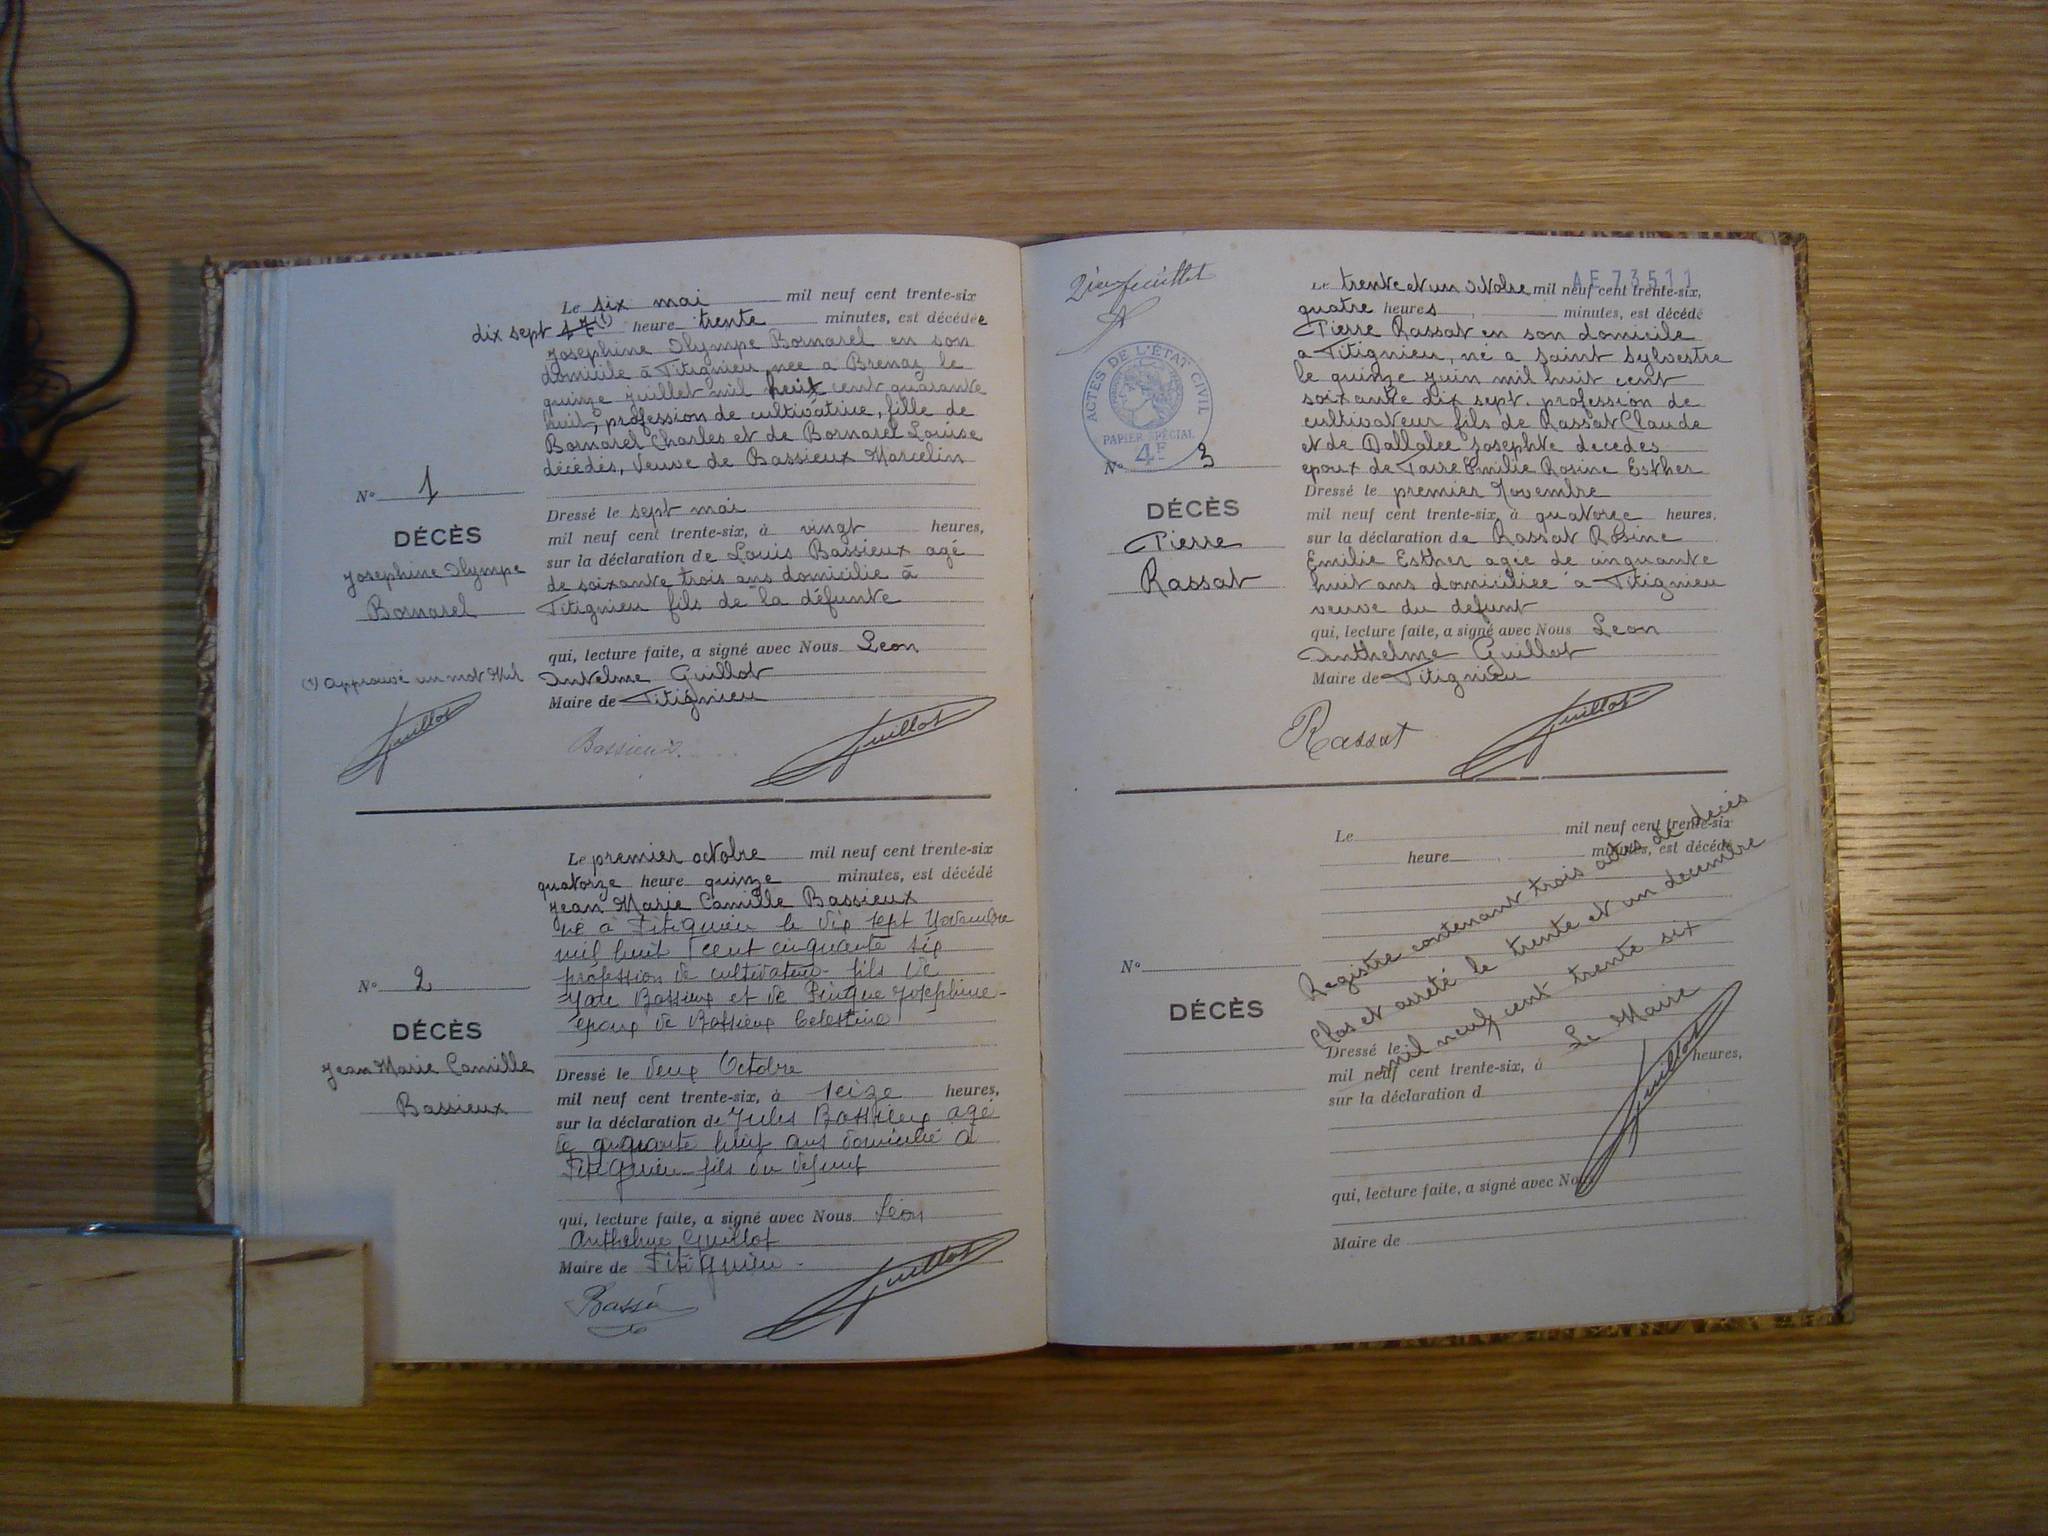 Le six mai mil neuf cent trente-six
dix sept 17 (1) heure trente minutes, est décédée
Josephine Olympe Bornarel en son
domicile à Titignieu née a Brenaz le
quinze juillet mil huit cent quarante
huit, profession de cultivatrice, fille de
Bornarel Charles et de Bornarel Louise
décédés, veuve de Bassieux Marcelin
N° 1
DÉCÈS
Josephine Olympe
Bornarel
Dressé le sept mai
mil neuf cent trente-six, à vingt heures,
sur la déclaration de Louis Bassieux agé
de soixante trois ans domicilié à
Titignieu fils de la défunte
qui, lecture faite, a signé avec Nous Leon
Antelme Guillot
Maire de Titignieu
(1) Approuvé un mot Nul
Guillot
Bassieux
Guillot
Le premier octobre mil neuf cent trente-six
quatorze heure quinze minutes, est décédé
Jean Marie Camille Bassieux
né à Fitignieu le dix sept Novembre
mil huit cent cinquante six
profession de cultivateur fils de
Bassieux et de Josephine
époux de Bassieux Celestine
N° 2
DÉCÈS
Jean Marie Camille
Bassieux
Dressé le deux Octobre
mil neuf cent trente-six, à seize heures,
sur la déclaration de Jules Bassieux agé
de cinquante huit ans domicilié à
Fitignieu fils du defunt
qui, lecture faite, a signé avec Nous Léon
Anthelme Guillot
Maire de Fitignieu
Guillot
2ième feuillet
AE 73511
ACTES DE L'ÉTAT CIVIL
PAPIER SPÉCIAL
4F
Le trente et un octobre mil neuf cent trente-six,
quatre heures minutes, est décédé
Pierre Rassat en son domicile
a Titignieu, né a Saint Sylvestre
le quinze juin mil huit cent
soixante dix sept. profession de
cultivateur fils de Rassat Claude
et de Josephte decedes
epoux de Emilie Rosine Esther
N° 3
DÉCÈS
Pierre
Rassat
Dressé le premier Novembre
mil neuf cent trente-six, à quatorze heures,
sur la déclaration de Rassat Rosine
Emilie Esther agée de cinquante
huit ans domiciliée a Titignieu
veuve du defunt
qui, lecture faite, a signé avec Nous Leon
Anthelme Guillot
Maire de Titignieu
Rassat
Guillot
Le mil neuf cent trente-six
heure minutes, est décédé
Registre contenant trois actes de decés
Clos et arrété le trente et un decembre
mil neuf cent trente six
Le Maire
Guillot
N°
DÉCÈS
Dressé le
mil neuf cent trente-six, à heures,
sur la déclaration d
qui, lecture faite, a signé avec Nous
Maire de